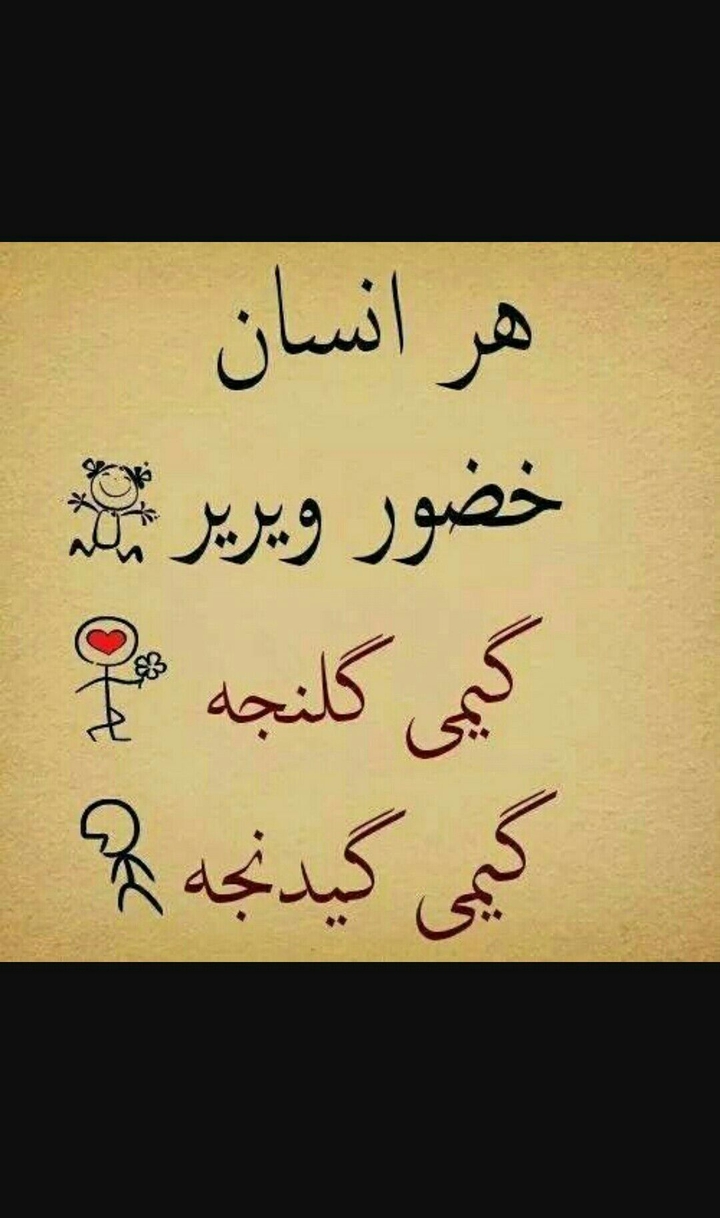 هر انسان
خضور ویریر
گیمی گلنجه
گیمی گیدنجه